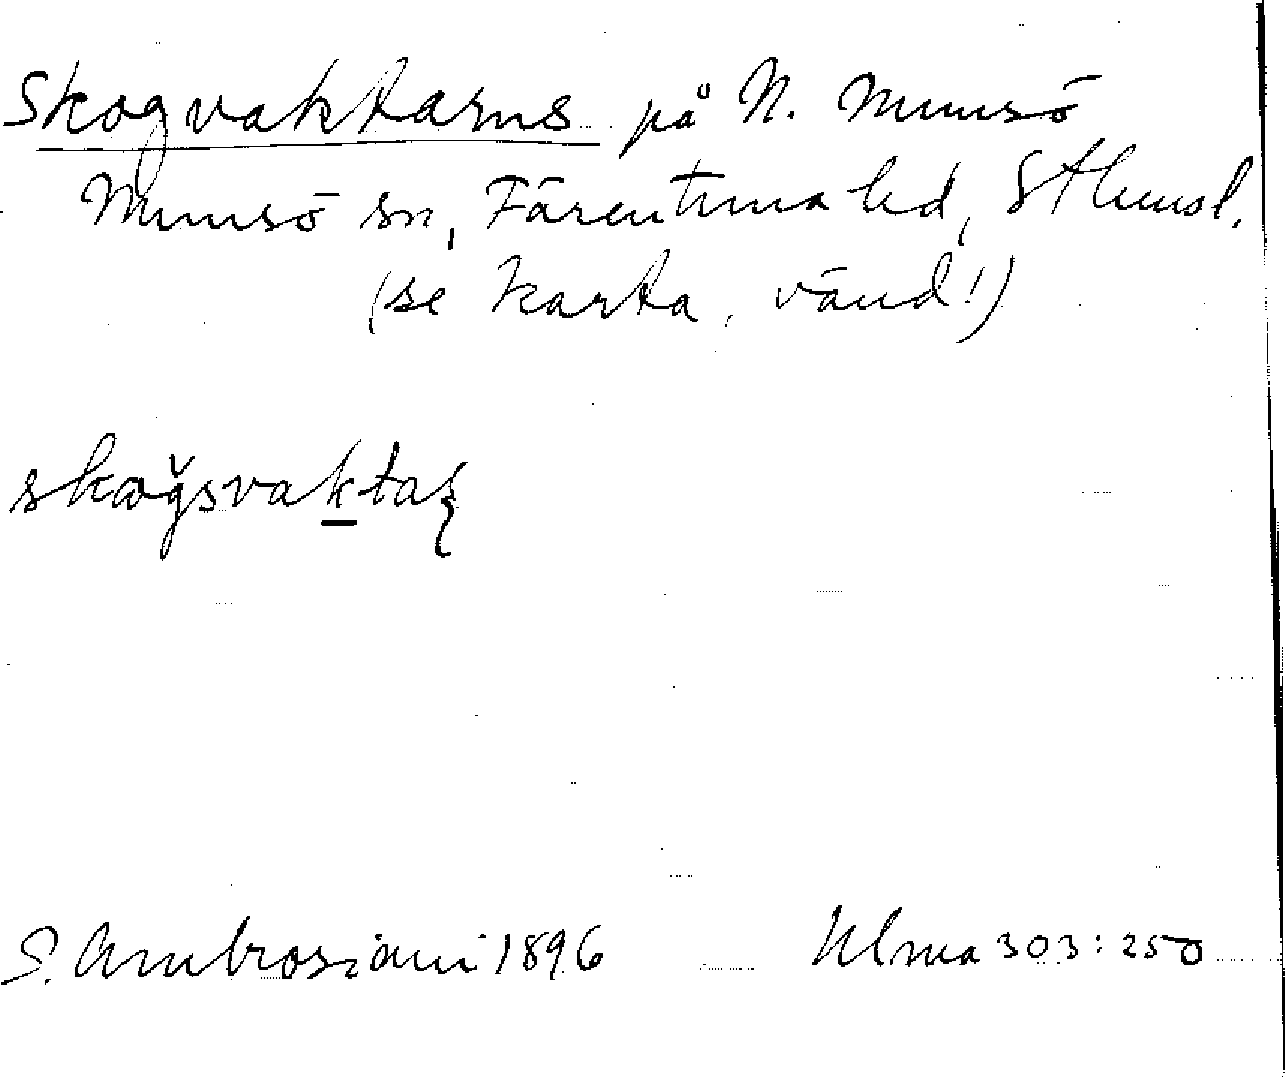 Skogvaktarns på N. Munsö
Munsö sn, Färentuna hd, Sthmsl.
(se karta, vänd!)
S. Ambrosiani 1896
Ulma 303:250